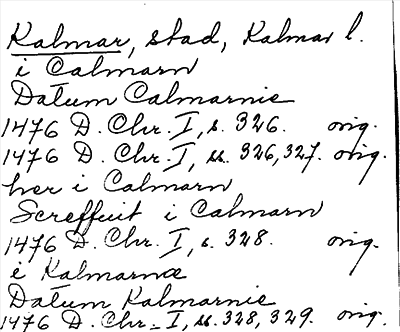 Kalmar, stad, Kalmar l.
i Calmarn
Datum Calmarnie
1476 D. Chr. I, s. 326. orig.
1476 D. Chr. I, ss. 326, 327. orig.
her i Calmarn
Screffuit i Calmarn
1476 D. Chr. I, s. 328. orig.
i Kalmarnæ
Datum Kalmarnie
1476 D. Chr. I, ss. 328, 329. orig.